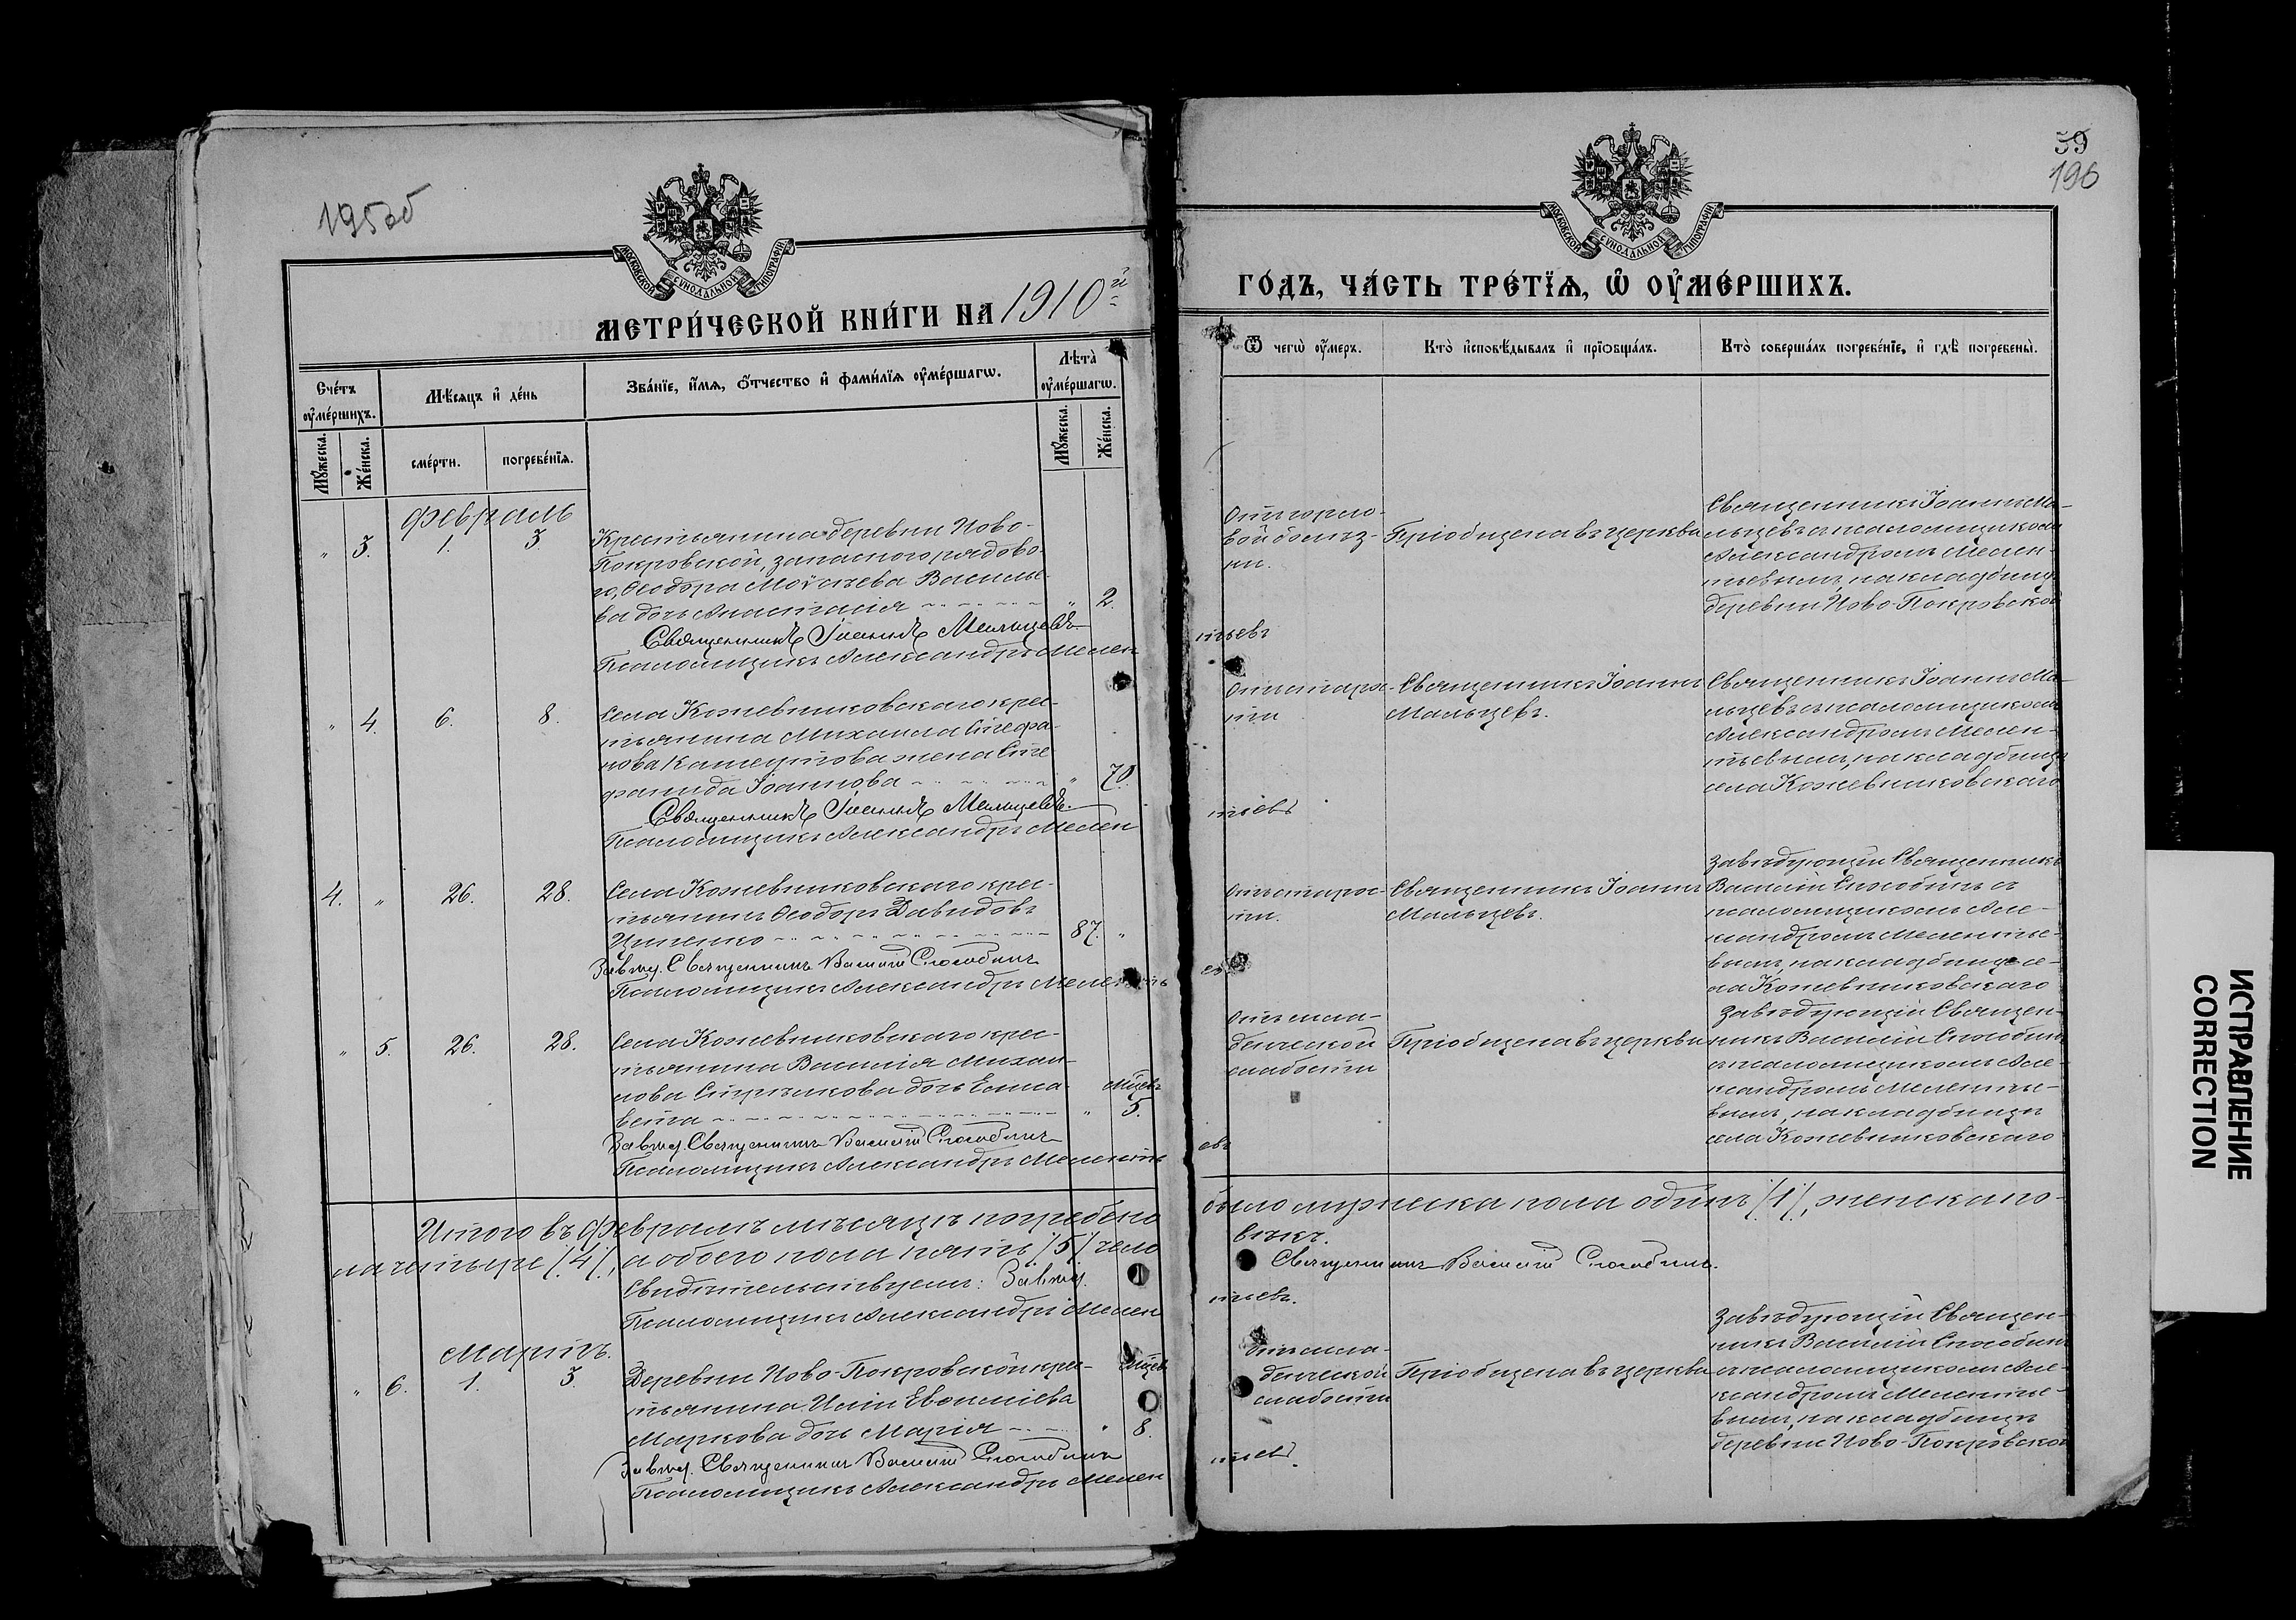 195об
МОСКОВСКОЙ СѴНОДАЛЬНОЙ ТИПОГРАФІИ
МЕТРИ́ЧЕСКОЙ КНИ́ГИ НА 1910й
Счётъ ᲂу҆ме́ршихъ.
Мꙋ́жеска.
Же́нска.
Мѣ́сяцъ и҆ де́нь
сме́рти.
погребе́нїѧ.
Зва́нїе, и҆́мѧ, ѻ҆́тчество и҆ фами́лїѧ ᲂу҆ме́ршагѡ.
Лѣта̀ ᲂу҆ме́ршагѡ.
Мꙋ́жеска.
Же́нска.
Февраль
" 3. 1. 3.
Крестьянина деревни Ново-
Покровской, запасного рядово-
го, Ѳеодора Моѵсеева Василье-
ва дочь Анастасія " 2.
Священникъ Іоаннъ Мальцевъ
Псаломщикъ Александръ Мелен
" 4. 6. 8.
Села Кожевниковскаго крес-
тьянина Михаила Стефа-
нова жена Сте
фанида Іоаннова " 70.
Священникъ Іоаннъ Мальцевъ.
Псаломщикъ Александръ Мелен
4. " 26. 28.
Села Кожевниковскаго крес-
тьянинъ Ѳеодоръ Давидовъ
87. "
Завѣд. Священникъ Василій Способинъ
Псаломщикъ Александръ Мелентьъ
" 5. 26. 28.
Села Кожевниковскаго крес-
тьянина Василія Михаи-
лова дочь Елиса- мѣсц.
вета " 5.
Завѣд. Священникъ Василій Способинъ
Псаломщикъ Александръ Меленть
Итого въ Февралѣ мѣсяцѣ погребено
ла четыре /4/, а обоего пола пять /5/ чело
Свидѣтельствуемъ: Завѣд.
Псаломщикъ Александръ Мелен
Мартъ.
" 6. 1. 3.
Деревни Ново-Покровской крес- мѣсц.
тьянина Иліи Евфиміева
Маркова дочь Марія " 8.
Завѣд. Священникъ Василій Способинъ
Псаломщикъ Александръ Мелен
59
196
МОСКОВСКОЙ СѴНОДАЛЬНОЙ ТИПОГРАФІИ
ГО́ДЪ, ЧА́СТЬ ТРЕ́ТЇѦ, Ѡ҆ ОУ҆МЕ́РШИХЪ.
Ѿ чегѡ̀ ᲂу҆́меръ.
Кто̀ и҆сповѣ́дывалъ и҆ прїѡбща́лъ.
Кто̀ соверша́лъ погребе́нїе, и҆ гдѣ̀ погребены̀.
Отъ горло-
вой болѣз-
ни.
Пріобщена въ церкви
Священникъ Іоаннъ Ма-
льцевъ съ псаломщикомъ
Александромъ Мелен-
тьевымъ, на кладбищѣ
деревни Ново-Покровской
тьевъ
Отъ старос-
ти
Священникъ Іоаннъ
Мальцевъ.
Священникъ Іоаннъ Ма-
льцевъ съ псаломщикомъ
Александромъ Мелен-
тьевымъ, на кладбищѣ
села Кожевниковскаго
тьевъ
Отъ старос-
ти.
Священникъ Іоаннъ
Мальцевъ.
Завѣдующій Священникъ
Василій Способинъ съ
псаломщикомъ Але-
ксандромъ Меленть-
вымъ, на кладбищѣ се-
ла Кожевниковскаго
евъ
Отъ мла-
денческой
слабости
Пріобщена въ церкви
Завѣдующій Священ-
никъ Василій Способинъ
съ псаломщикомъ Але-
ксандромъ Мелентье-
вымъ, на кладбищѣ
села Кожевниковскаго
евъ
было мужеска пола одинъ /1/, женска по-
вѣкъ.
Священникъ Василій Способинъ.
тьевъ.
Отъ мла-
денческой
слабости
Пріобщена въ церкви
Завѣдующій Священ-
никъ Василій Способинъ
съ псаломщикомъ Але-
ксандромъ Мелентье-
вымъ, на кладбищѣ
деревни Ново-Покровской
тьевъ.
ИСПРАВЛЕНИЕ
CORRECTION